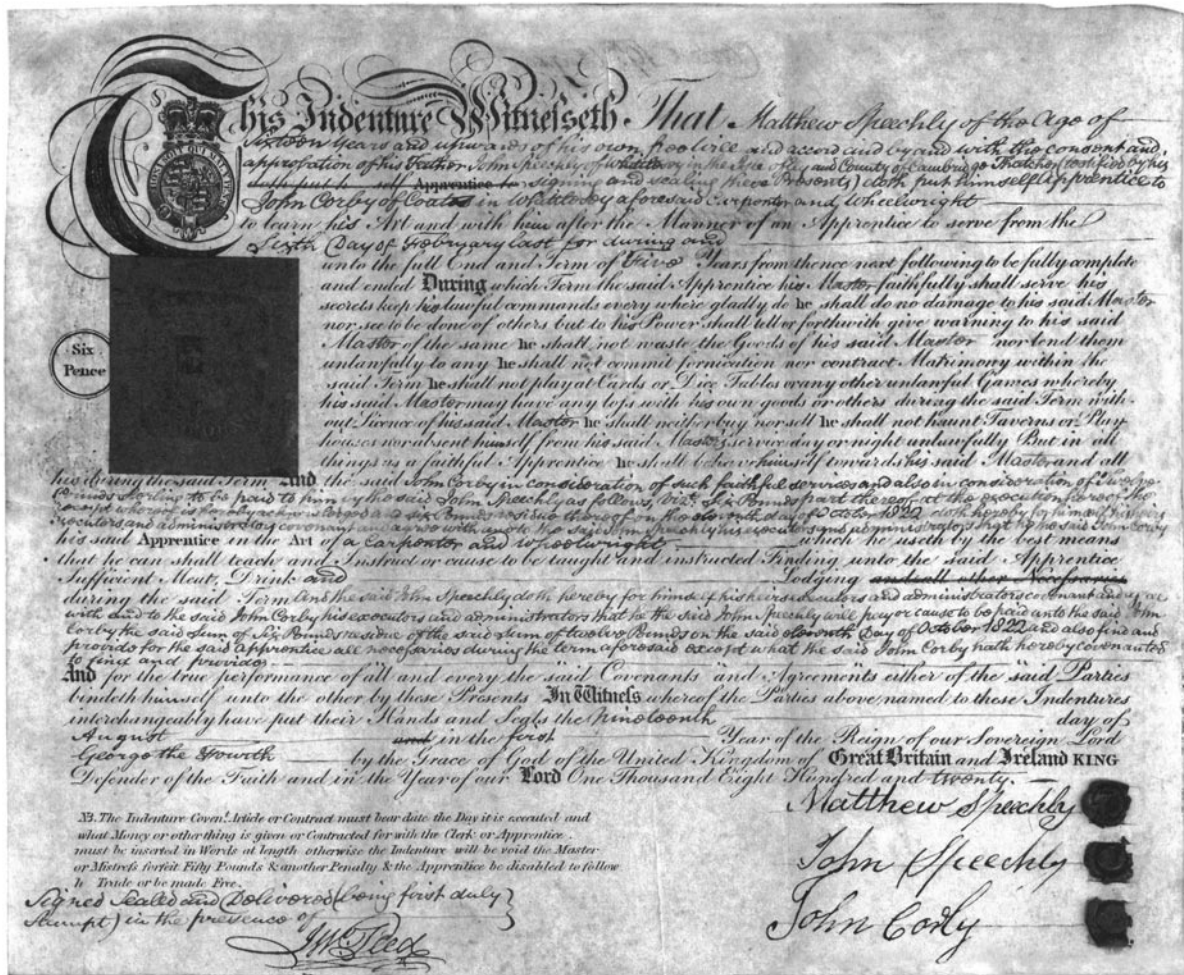 This Indenture Witnesseth. That Matthew Speechly of the Age of
Sixteen Years and upwards of his own free Will and accord and by and with the consent and
approbation of his Father John Speechly of Whittlesey in the Isle of Ely and County of Cambridge Thatcher (testified by his
doth put h self Apprentice to signing and sealing these Presents) doth put himself Apprentice to
John Corby of Coates in Whittlesey aforesaid Carpenter and Wheelwright
to learn his Art and with him after the Manner of an Apprentice to serve from the
Sixth Day of February last for during and
unto the full End and Term of Five Years from thence next following to be fully complete
and ended During which Term the said Apprentice his Master faithfully shall serve his
secrets keep his lawful commands every where gladly do he shall do no damage to his said Master
nor see to be done of others but to his Power shall tell or forthwith give warning to his said
Master of the same he shall not waste the Goods of his said Master nor lend them
unlawfully to any he shall not commit fornication nor contract Matrimony within the
said Term he shall not play at Cards or Dice Tables or any other unlawful Games whereby
his said Master may have any loss with his own goods or others during the said Term with-
out Licence of his said Master he shall neither buy nor sell he shall not haunt Taverns or Play
houses nor absent himself from his said Master's service day or night unlawfully But in all
things as a faithful Apprentice he shall behave himself towards his said Master and all
his during the said Term And the said John Corby in consideration of such faithful services and also in consideration of Twelve
Pounds sterling to be paid to him by the said John Speechly as follows, viz.: Six Pounds part thereof at the execution hereof the
receipt whereof is hereby acknowledged and six Pounds residue thereof on the eleventh day of October 1822 doth hereby for himself his heirs
executors and administrators covenant and agree with and to the said John Speechly his executors and administrators that he the said John Corby
his said Apprentice in the Art of a Carpenter and Wheelwright which he useth by the best means
that he can shall teach and Instruct or cause to be taught and instructed Finding unto the said Apprentice
Sufficient Meat, Drink and Lodging and all other Necessaries
during the said Term And the said John Speechly doth hereby for himself his heirs executors and administrators covenant and agree
with and to the said John Corby his executors and administrators that he the said John Speechly will pay or cause to be paid unto the said John
Corby the said Sum of Six Pounds residue of the said Sum of twelve Pounds on the said eleventh Day of October 1822 and also find and
provide for the said Apprentice all necessaries during the term aforesaid except what the said John Corby hath hereby covenanted
to find and provide
And for the true performance of all and every the said Covenants and Agreements either of the said Parties
bindeth himself unto the other by these Presents In Witness whereof the Parties above named to these Indentures
interchangeably have put their Hands and Seals the Nineteenth day of
August and in the first Year of the Reign of our Sovereign Lord
George the Fourth by the Grace of God of the United Kingdom of Great Britain and Ireland KING
Defender of the Faith and in the Year of our Lord One Thousand Eight Hundred and twenty.
Six
Pence
Matthew Speechly
John Speechly
John Corby
NB. The Indenture Coven.t Article or Contract must bear date the Day it is executed and
what Money or other thing is given or Contracted for with the Clerk or Apprentice
must be inserted in Words at length otherwise the Indenture will be void the Master
or Mistress forfeit Fifty Pounds & another Penalty & the Apprentice be disabled to follow
h Trade or be made Free.
Signed Sealed and Delivered (being first duly
Stampt) in the presence of